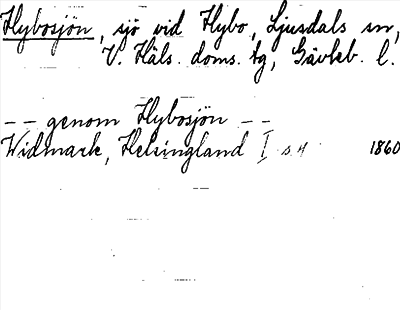 Hybosjön, sjö vid Hybo, Ljusdals sn,
V. Häls. doms. tg, Gävleb. l.
-- genom Hybosjön --
Widmark, Helsingland I s 4 1860